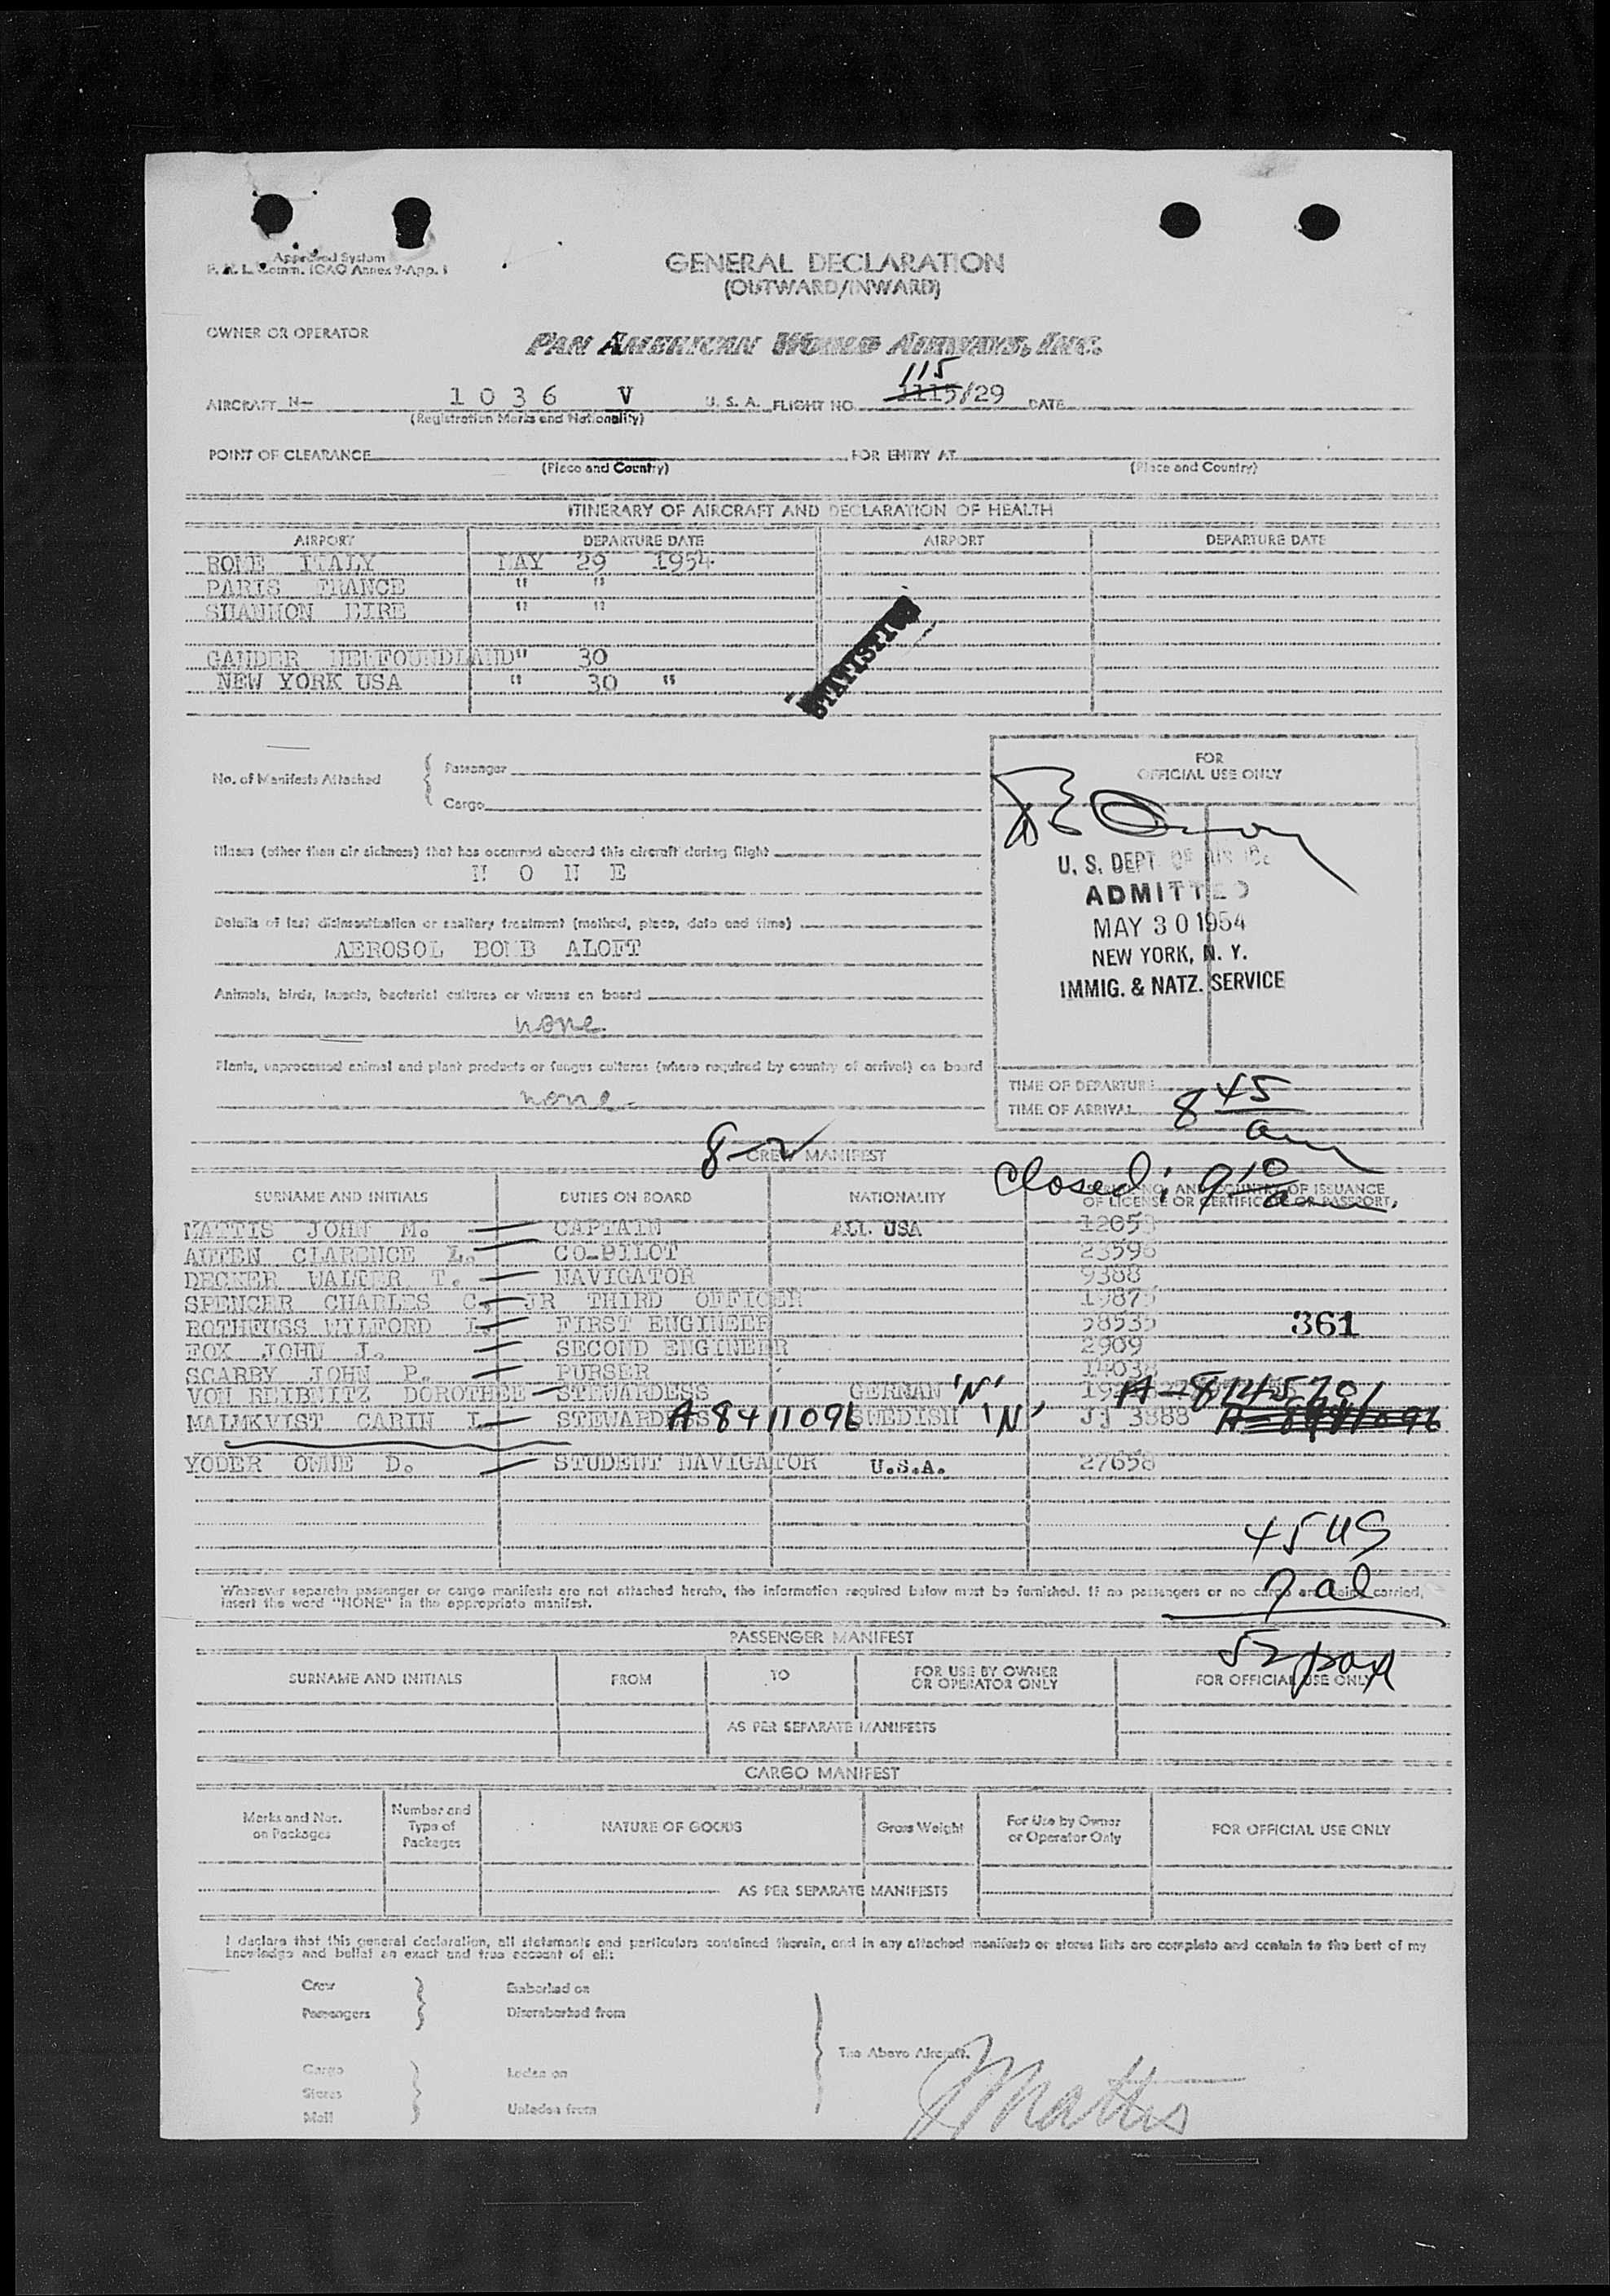 Approved System
P. & L. Comm. ICAO Annex 9-App. 1
GENERAL DECLARATION
(OUTWARD/INWARD)
OWNER OR OPERATOR
PAN AMERICAN WORLD AIRWAYS, INC.
115
AIRCRAFT N- 1036 V U. S. A. FLIGHT NO. 1115/29 DATE
(Registration Marks and Nationality)
POINT OF CLEARANCE FOR ENTRY AT
(Place and Country) (Place and Country)
ITINERARY OF AIRCRAFT AND DECLARATION OF HEALTH
AIRPORT DEPARTURE DATE AIRPORT DEPARTURE DATE
ROME ITALY MAY 29 1954
PARIS FRANCE " "
SHANNON EIRE " "
GANDER NEWFOUNDLAND" 30
NEW YORK USA " 30 "
STATISTICS
No. of Manifests Attached
Passenger
Cargo
FOR
OFFICIAL USE ONLY
Illness (other than air sickness) that has occurred aboard this aircraft during flight
N O N E
Details of last disinsectization or sanitary treatment (method, place, date and time)
AEROSOL BOMB ALOFT
Animals, birds, insects, bacterial cultures or viruses on board
none.
Plants, unprocessed animal and plant products or fungus cultures (where required by country of arrival) on board
none.
U. S. DEPT. OF JUSTICE
ADMITTED
MAY 30 1954
NEW YORK, N. Y.
IMMIG. & NATZ. SERVICE
TIME OF DEPARTURE
TIME OF ARRIVAL 8 45 am
CREW MANIFEST
Closed: 9 10 a
SURNAME AND INITIALS DUTIES ON BOARD NATIONALITY NO. AND COUNTRY OF ISSUANCE
OF LICENSE OR CERTIFICATE OR PASSPORT
MATTIS JOHN M. CAPTAIN ALL USA
AUTEN CLARENCE L. CO-PILOT 23596
DECKER WALTER T. NAVIGATOR 9388
SPENCER CHARLES C. JR THIRD OFFICER
ROTHFUSS WILFORD L. FIRST ENGINEER 58535
361
FOX JOHN J. SECOND ENGINEER 2909
SCARBY JOHN P. PURSER
VON REIBNITZ DOROTHEE STEWARDESS GERMAN 'N'
MALMKVIST CARIN I. STEWARDESS A8411096 SWEDISH 'N' JJ 3888
YODER OWNE D. STUDENT NAVIGATOR U.S.A. 27658
45 US
7 al
52 pax
Whenever separate passenger or cargo manifests are not attached hereto, the information required below must be furnished. If no passengers or no cargo are being carried,
insert the word "NONE" in the appropriate manifest.
PASSENGER MANIFEST
SURNAME AND INITIALS FROM TO FOR USE BY OWNER OR OPERATOR ONLY FOR OFFICIAL USE ONLY
AS PER SEPARATE MANIFESTS
CARGO MANIFEST
Marks and Nos. on Packages Number and Type of Packages NATURE OF GOODS Gross Weight For Use by Owner or Operator Only FOR OFFICIAL USE ONLY
AS PER SEPARATE MANIFESTS
I declare that this general declaration, all statements and particulars contained therein, and in any attached manifests or stores lists are complete and contain to the best of my
knowledge and belief an exact and true account of all:
Crew Embarked on
Passengers Disembarked from
The Above Aircraft.
Cargo Laden on
Stores
Mail Unladen from
J Mattis